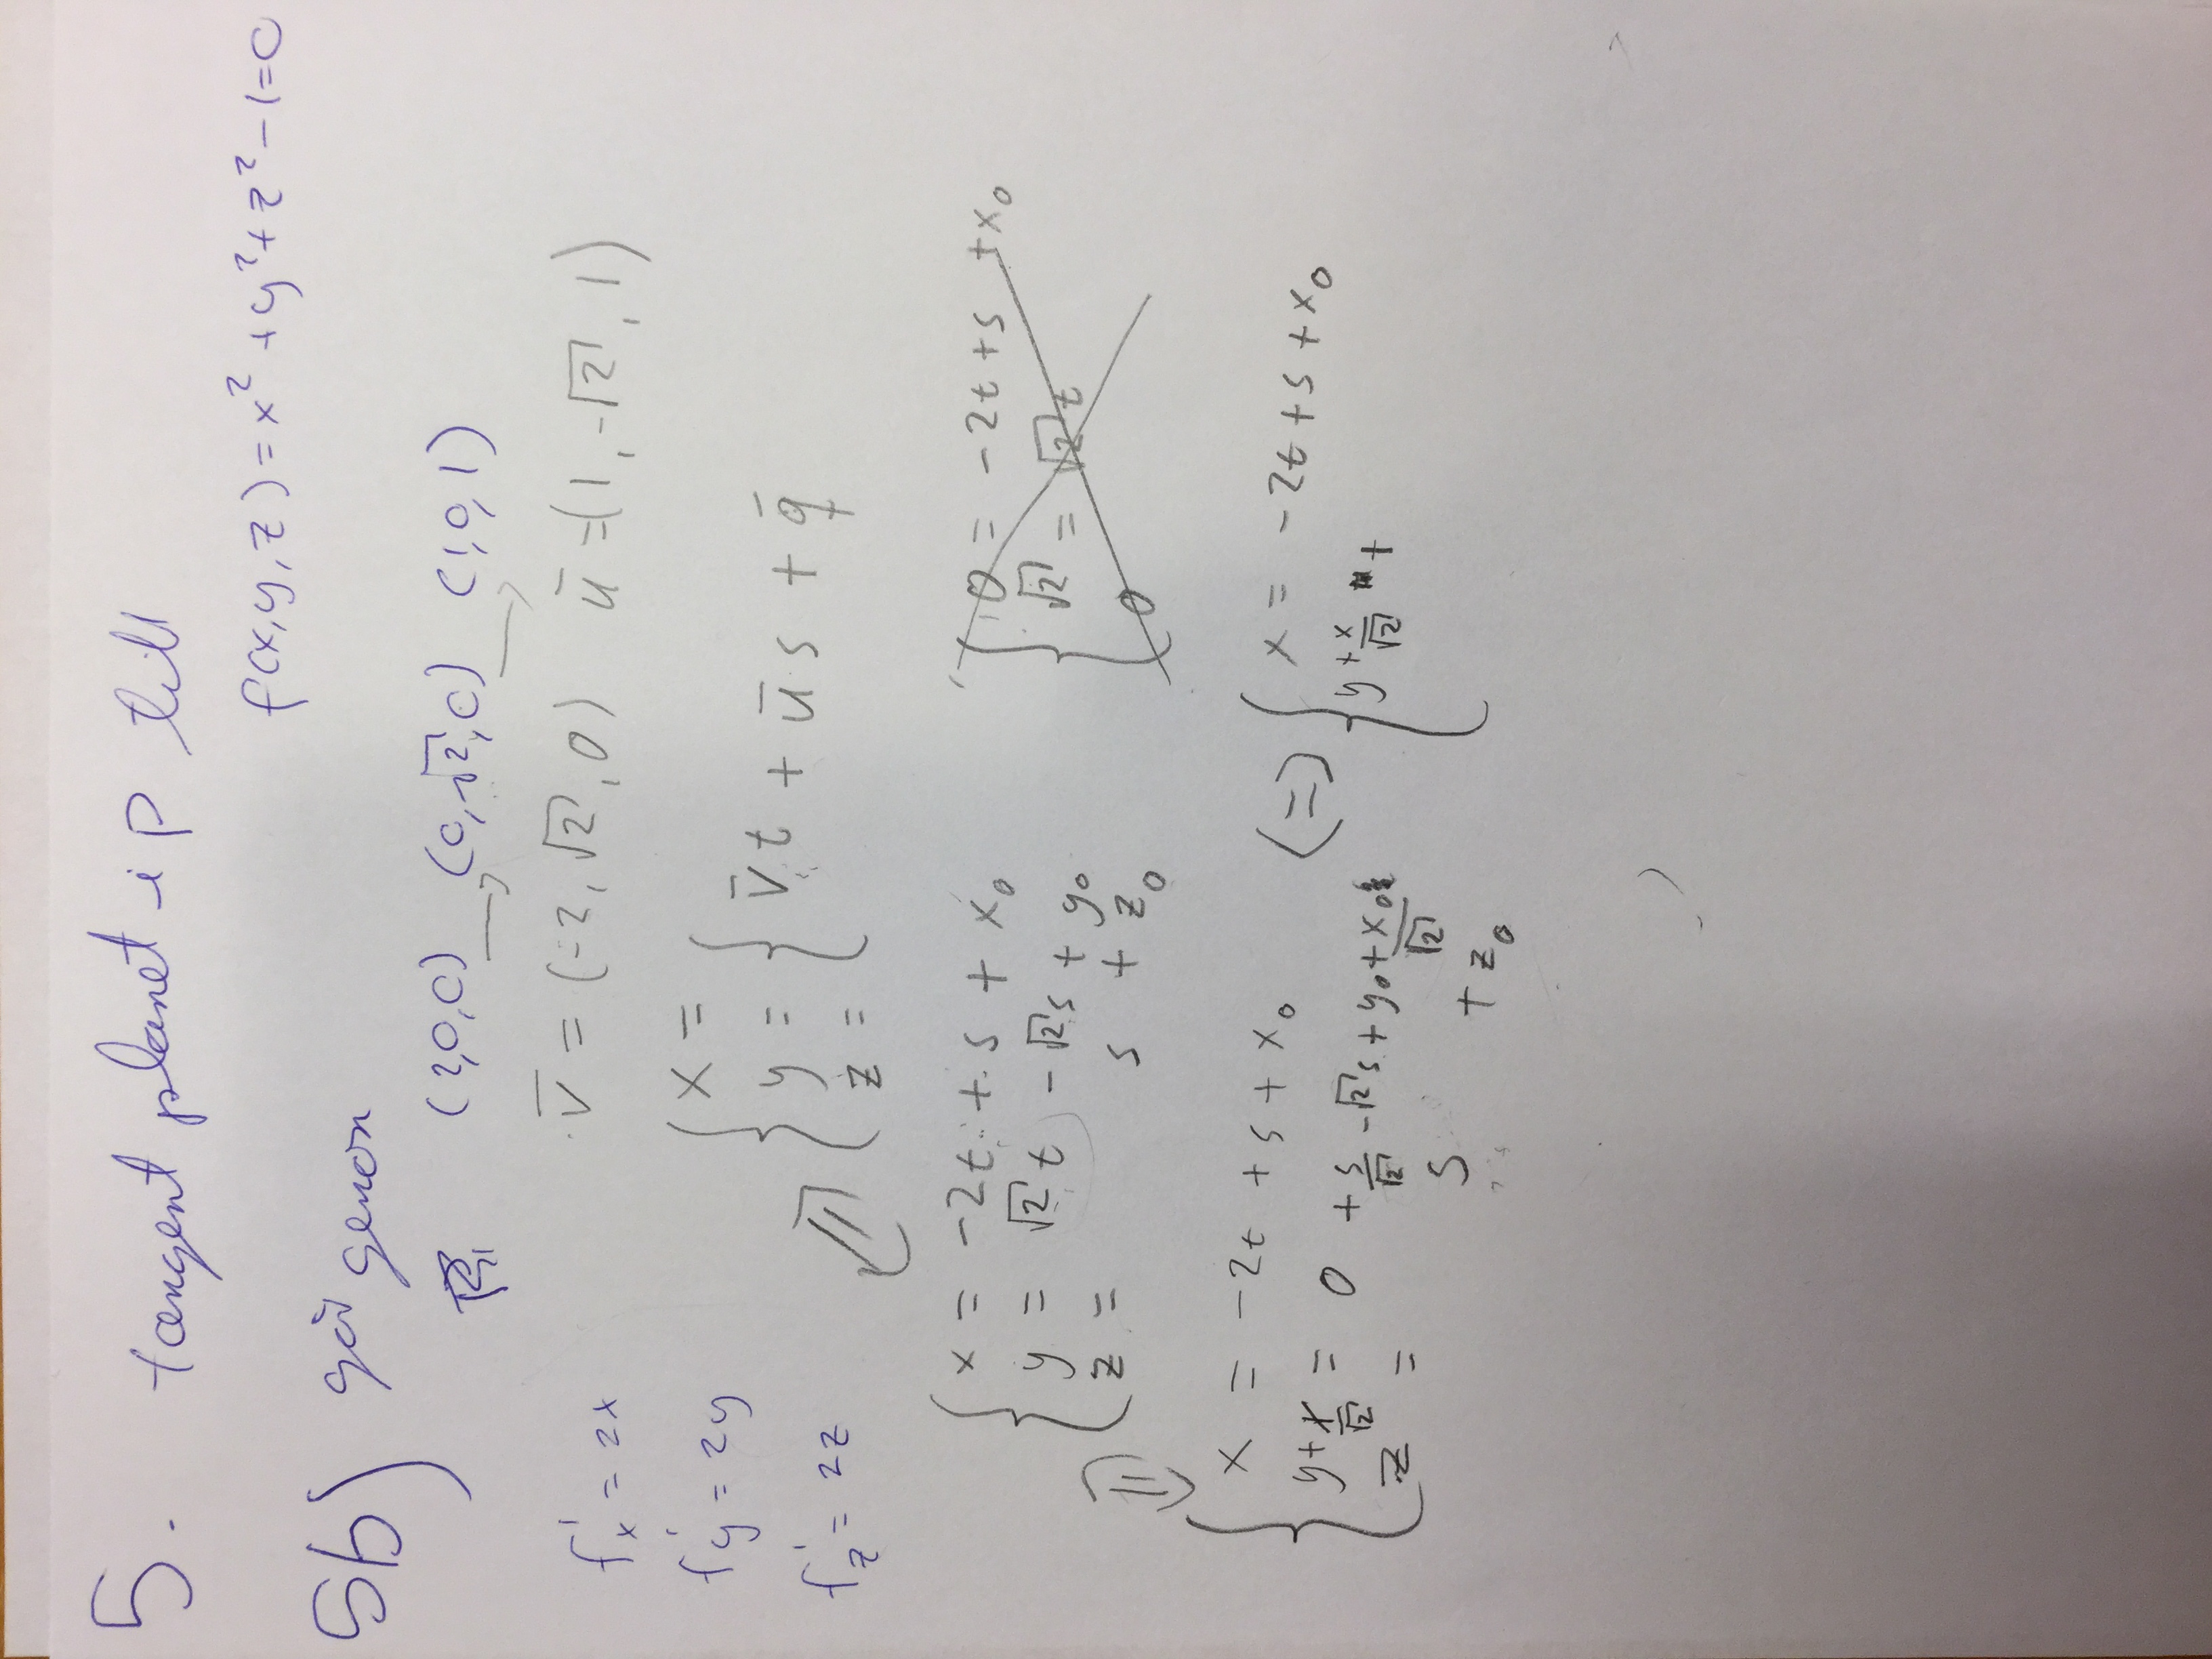 5. tangent planet i P till
f(x,y,z) = x² + y² + z² - 1 = 0
5b) går genom
(2,0,0) → (0,√2,0) → (1,0,1)
v̄ = (-2, √2, 0) ū = (1, -√2, 1)
f'x = 2x
f'y = 2y
f'z = 2z
{ x =
y = { v̄t + ūs + q̄
z =
{ x = -2t + s + x₀
y = √2 t - √2 s + y₀
z = s + z₀
{ 0 = -2t + s + x₀
√2 = √2 t
0
{ x = -2t + s + x₀
y + x/√2 = 0 + s/√2 - √2 s + y₀ + x₀/√2
z = s + z₀
(=) { x = -2t + s + x₀
y + x/√2 +